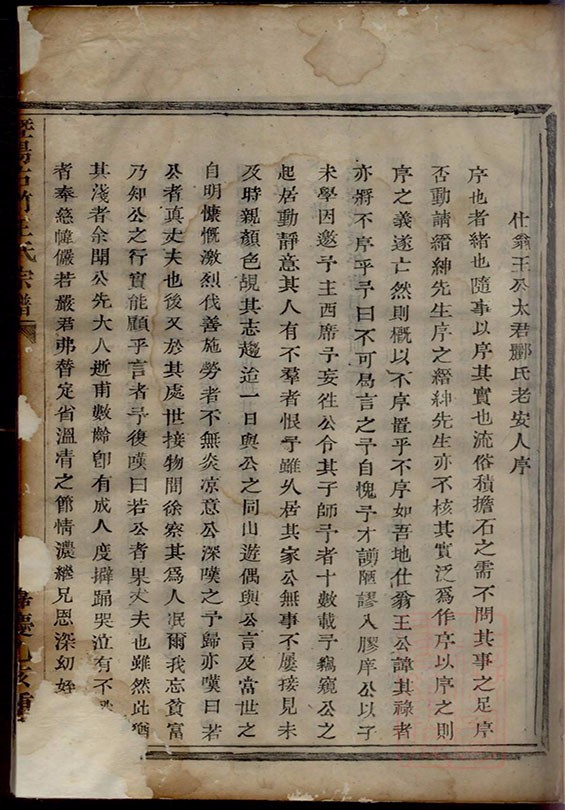 仕翁王公太君酈氏老安人序
序也者緒也隨事以序其實也流俗積擔石之需不問其事之足序
否動請縉紳先生序之縉紳先生亦不核其實泛為作序以序之則
序之義遂亡然則概以不序置乎不序如吾地仕翁王公諱其祿者
亦將不序乎予曰不可易言之予自愧予才謭陋謬入膠庠公以子
未學因邀予主西席予妄徃公令其子師予者十數載予竊窺公之
起居動靜意其人有不羣者恨予雖久居其家公無事不屢接見未
及時親顏色覘其志趨迨一日與公之同山遊偶與公言及當世之
自明慷慨激烈伐善施勞者不無炎凉意公深嘆之予歸亦嘆曰若
公者真丈夫也後又於其處世接物間徐察其為人泯爾我忘貧富
乃知公之行實能顧乎言者予後嘆曰若公者果大夫也雖然此猶
其淺者余聞公先大人逝甫數齡卽有成人度擗踊哭泣有不
者奉慈幃儼若嚴君弗替定省溫凊之節情濃繼兄恩深幼姪
暨陽古竹王氏宗譜